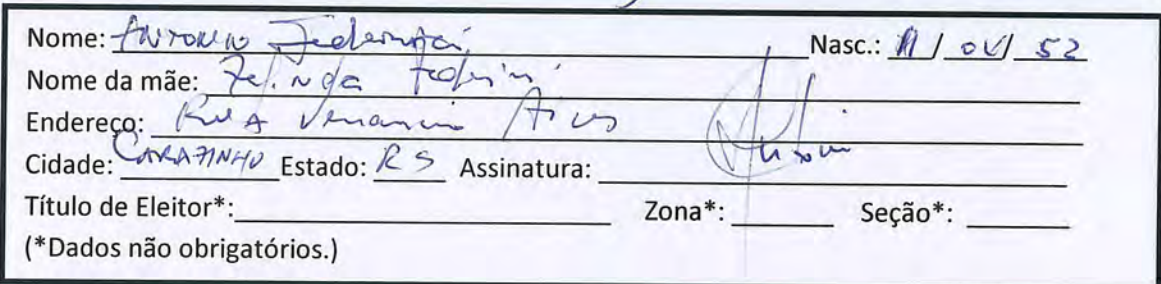 Nome: Antonio Nasc.: / 52
Nome da mãe:
Endereço: Rua Venancio Aires
Cidade: CARAZINHO Estado: RS Assinatura:
Título de Eleitor*: Zona*: Seção*:
(*Dados não obrigatórios.)